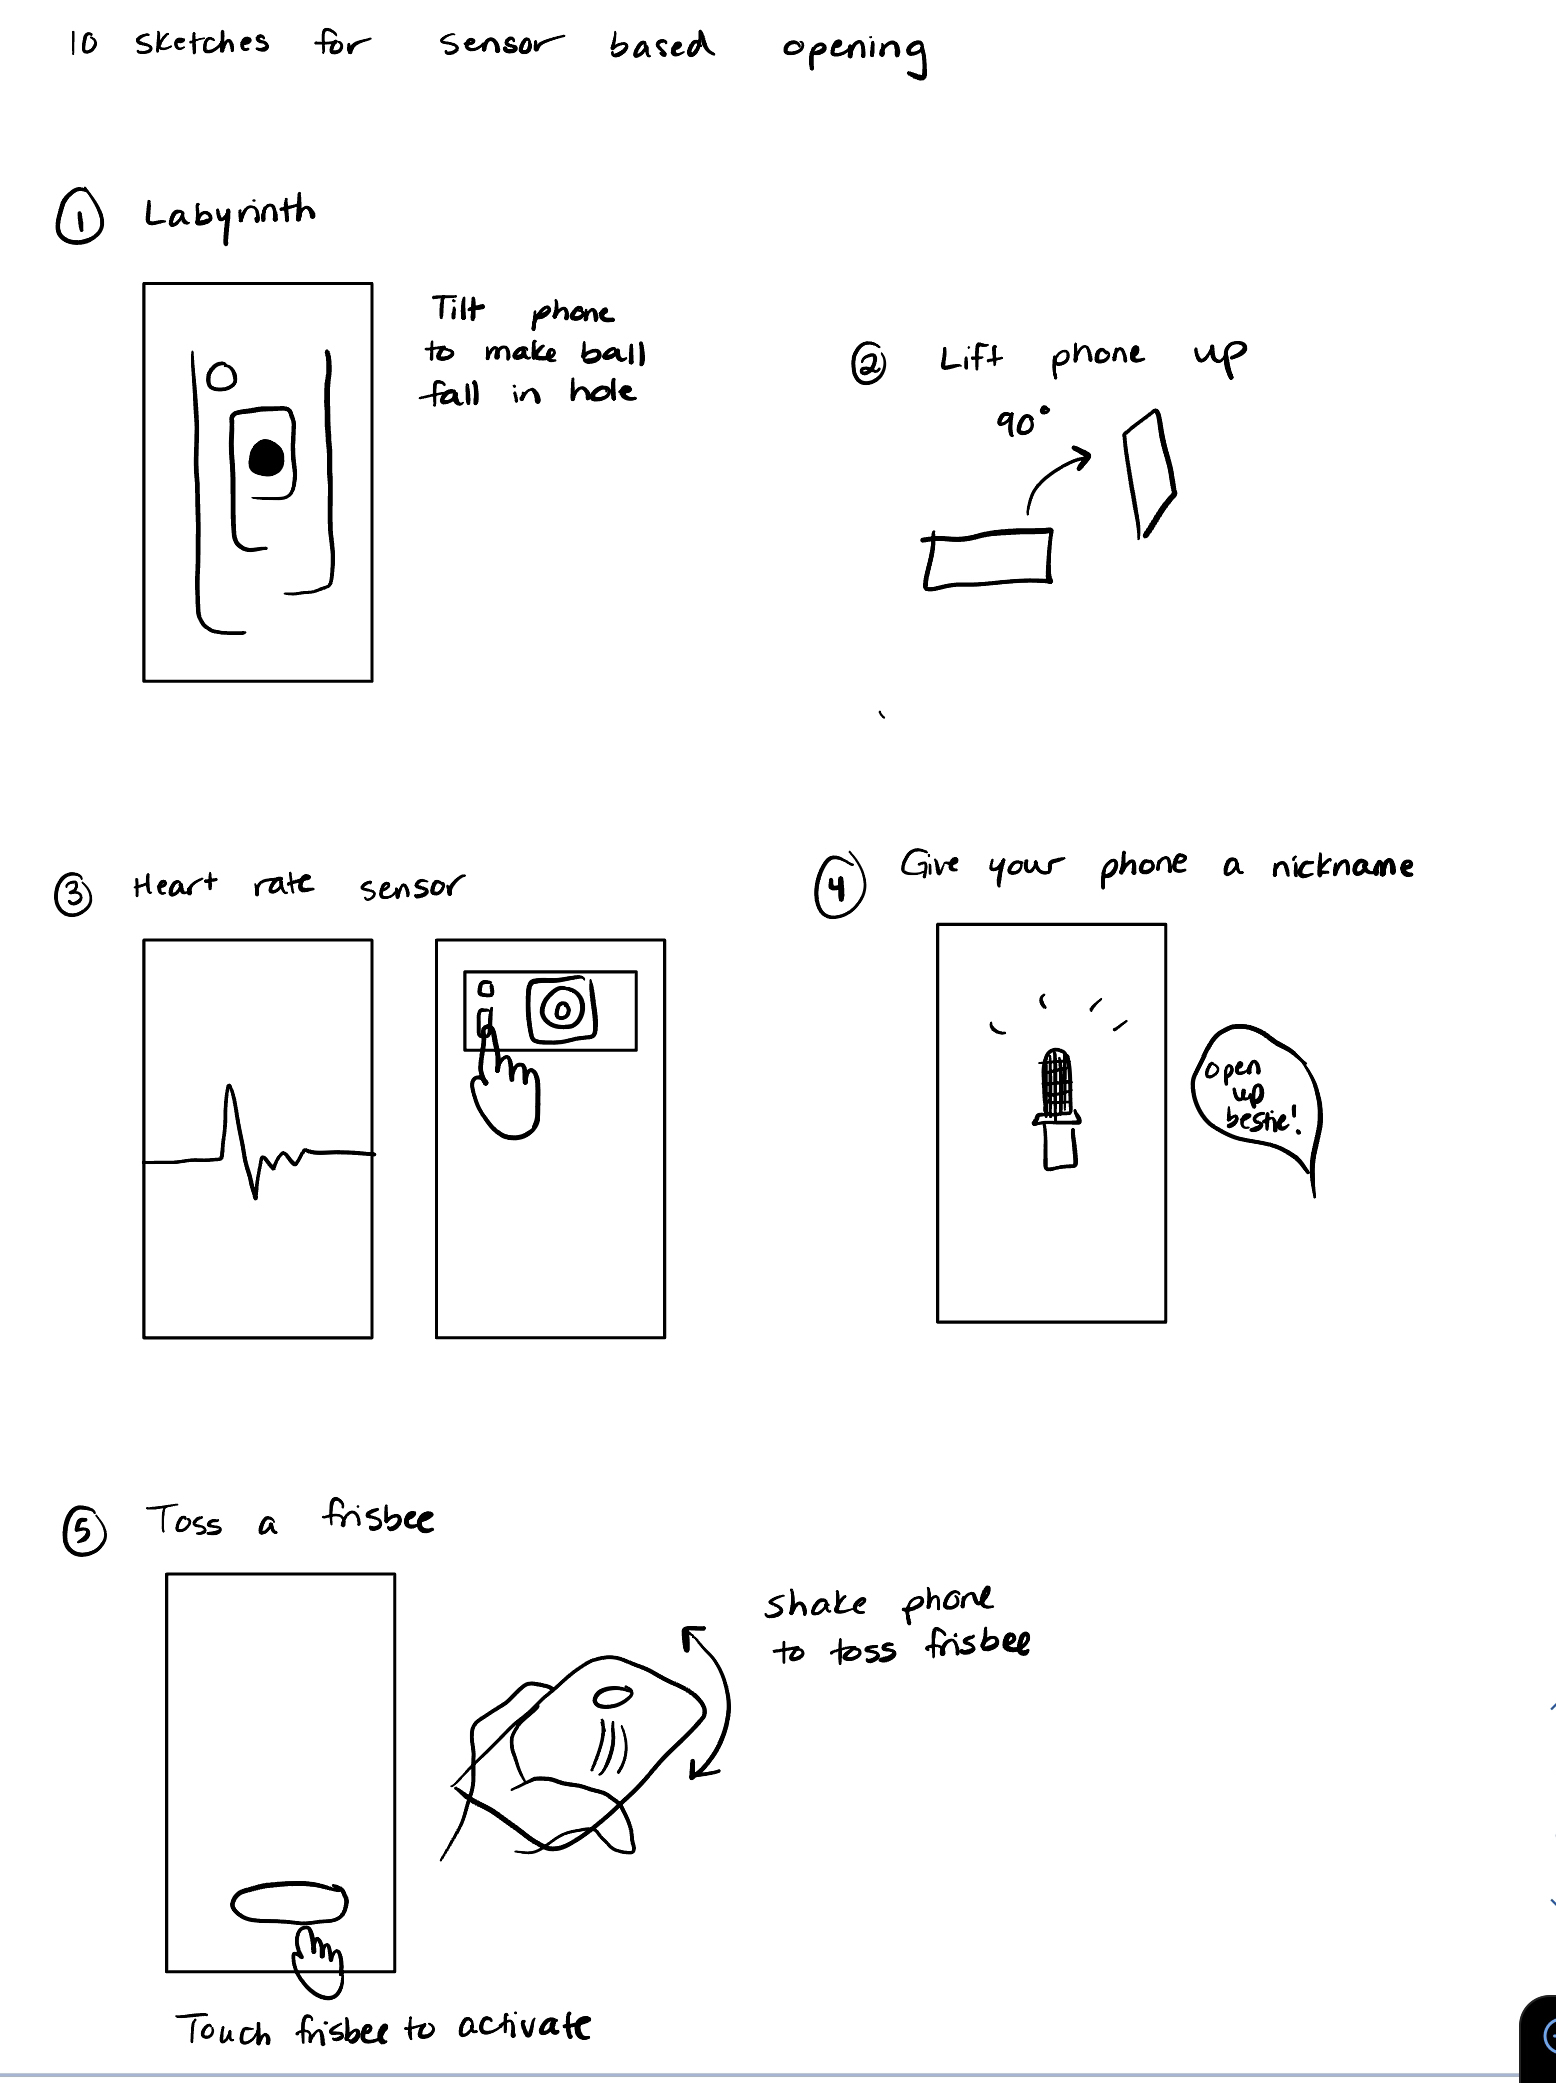 10 sketches for sensor based opening
① Labyrinth
Tilt phone
to make ball
fall in hole
② Lift phone up
90°
③ Heart rate sensor
④ Give your phone a nickname
open
up
bestie!
⑤ Toss a frisbee
Shake phone
to toss frisbee
Touch frisbee to activate